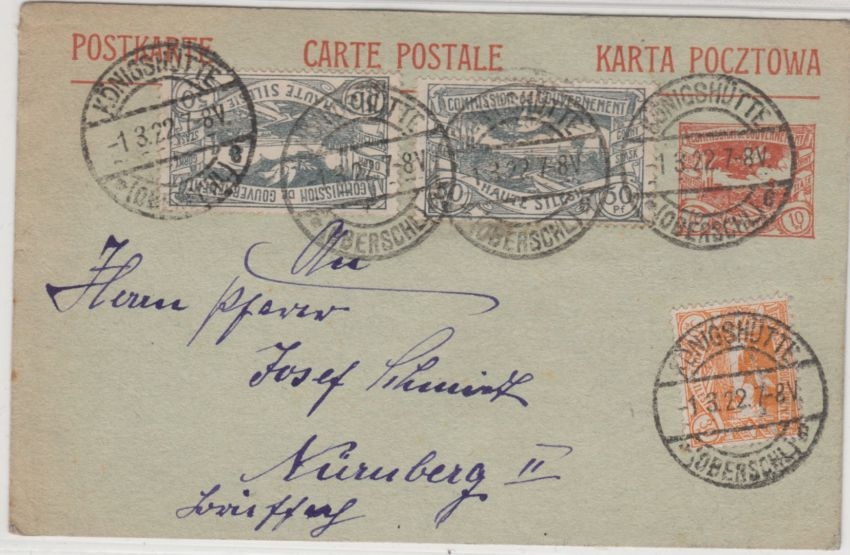 POSTKARTE CARTE POSTALE KARTA POCZTOWA
COMMISSION DE GOUVERNEMENT
HAUTE SILESIE
50 50
Pf
COMMISSION DE GOUVERNEMENT
HAUTE SILESIE
10
KÖNIGSHÜTTE
-1.3.22.7-8V.
*(OBERSCHL)* a
KÖNIGSHÜTTE
-1.3.22.7-8V.
*(OBERSCHL)*
KÖNIGSHÜTTE
-1.3.22.7-8V.
*(OBERSCHL)*
KÖNIGSHÜTTE
-1.3.22.7-8V.
*(OBERSCHL)* a
An
Herrn Pfarrer
Josef Schmidt
Nürnberg II
Brieffach
KÖNIGSHÜTTE
-1.3.22.7-8V.
*(OBERSCHL)* a